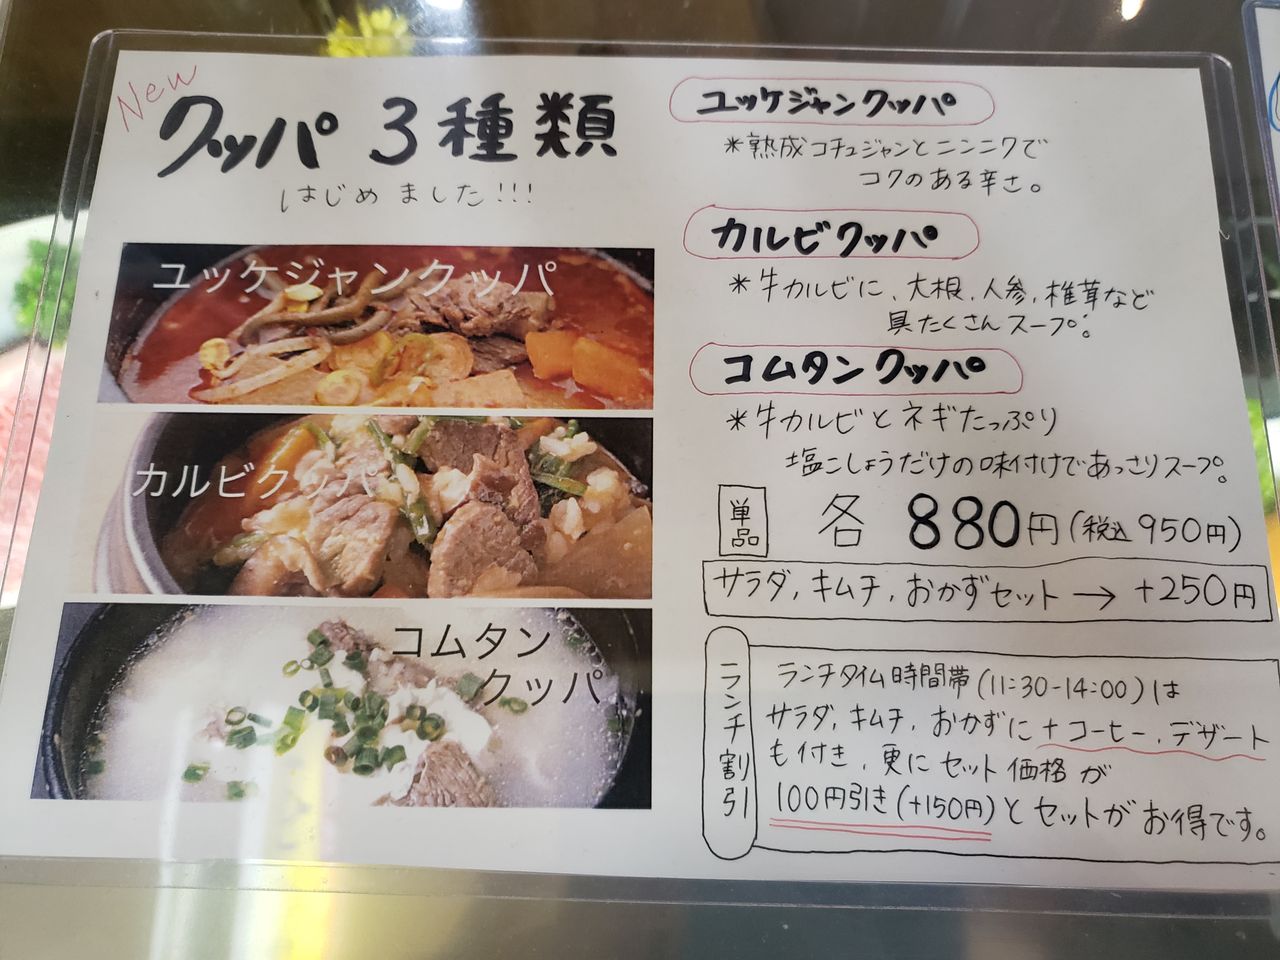 New
クッパ 3種類
はじめました!!!
ユッケジャンクッパ
カルビクッパ
コムタン
クッパ
ユッケジャンクッパ
*熟成コチュジャンとニンニクで
コクのある辛さ。
カルビクッパ
*牛カルビに、大根、人参、椎茸など
具たくさんスープ。
コムタンクッパ
*牛カルビとネギたっぷり
塩こしょうだけの味付けであっさりスープ。
単品 各 880円(税込950円)
サラダ、キムチ、おかずセット→+250円
ランチ割引
ランチタイム時間帯(11:30-14:00)は
サラダ、キムチ、おかずに+コーヒー、デザート
も付き、更にセット価格が
100円引き(+150円)とセットがお得です。